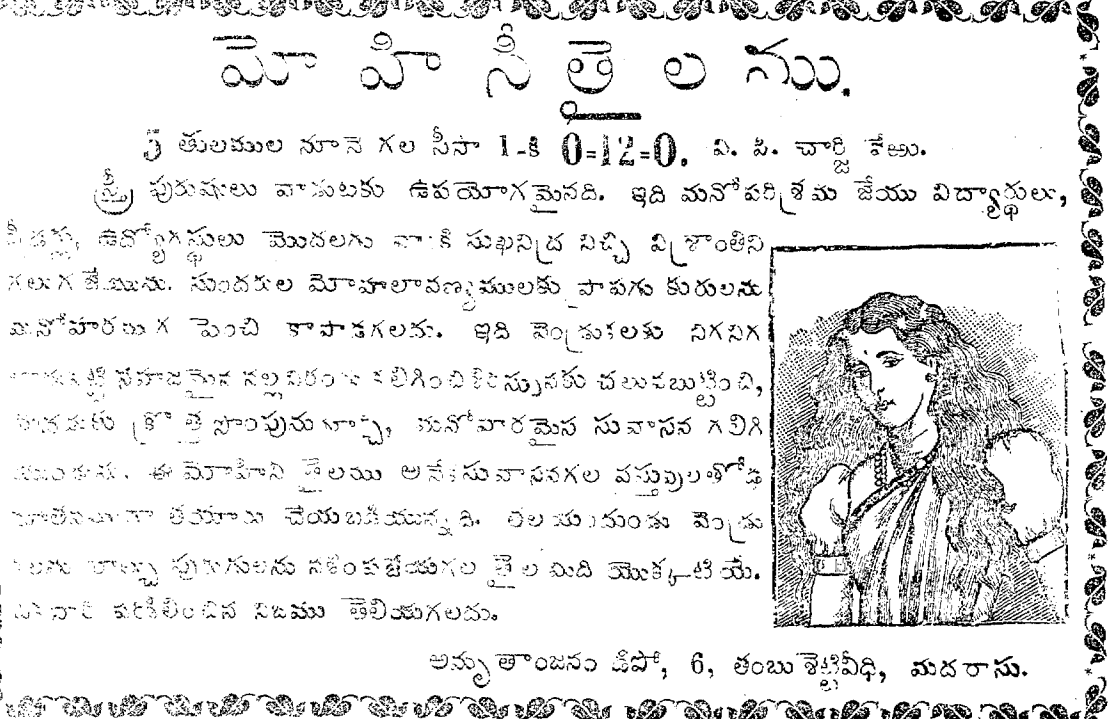 మోహినీతైలము.
5 తులముల నూనె గల సీసా 1-కి 0=12=0. వి. పి. చార్జి వేఱు.
స్త్రీ పురుషులు వాడుటకు ఉపయోగమైనది. ఇది మనోపరిశ్రమ జేయు విద్యార్థులు,
ప్లీడర్లు, ఉద్యోగస్థులు మొదలగు వారికి సుఖనిద్ర నిచ్చి విశ్రాంతిని
గలుగజేయును. సుందరుల మోహలావణ్యములకు పాపగు కురులను
మనోహరముగ పెంచి కాపాడగలదు. ఇది వెండ్రుకలకు నిగనిగ
సహజమైన నల్ల కలిగించి శిరస్సునకు చలువబుట్టించి,
క్రొత్తసొంపును మనోహరమైన సువాసన గలిగి
ఈ మోహినీ తైలము అనేకసువాసనగల వస్తువులతోడ
తయారు చేయబడియున్నది. తలయందుండు వెండ్రు
పురుగులను నశింపజేయగల తైల మిది యొక్కటియే.
పరిశీలించిన నిజము తెలియగలదు.
అమృతాంజనం డిపో, 6, తంబుశెట్టివీధి, మదరాసు.